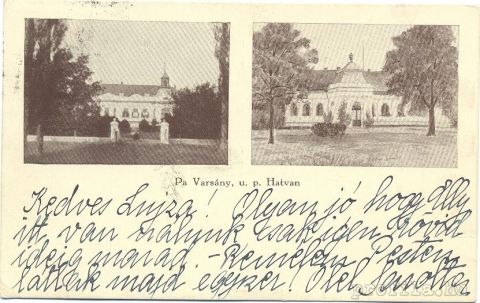 Pa Varsány, u. p. Hatvan
Kedves Lujza! Olyan jó hogy Elly
itt van nálunk csak igen rövid
ideig marad - Remélem Pesten
látlak majd egyszer! Ölel